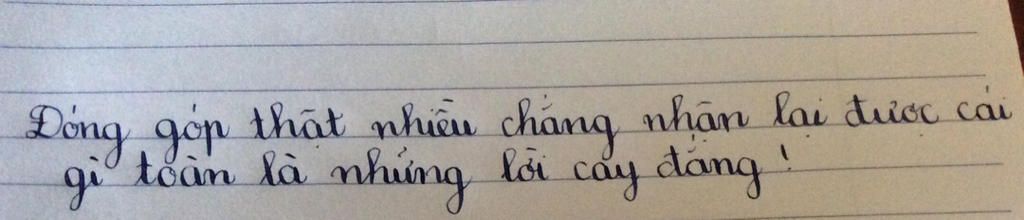 Đóng góp thật nhiều chẳng nhận lại được cái
gì toàn là những lời cay đắng!